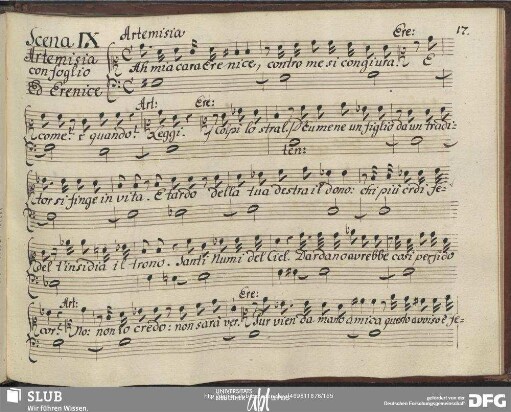 Scena IX
Artemisia
con foglio
Ed Erenice.
Artemisia
Ere:
17.
Ah mia cara Erenice, contro me si congiura. E
Art: Ere:
come? è quando? Leggi. colpi lo stral. D'Eumene un figlio da un tradi-
tor si finge in vita. E tardo della tua destra il dono: chi più crdi fe-
del t'insidia il trono. Santi Numi del Ciel. Dardano avrebbe così perfido
Art: Ere:
cor? No: non lo credo: non sarà ver. Pur vien da mano amica questo avviso è fe-
SLUB
Wir führen Wissen.
gefördert von der
Deutschen Forschungsgemeinschaft
DFG